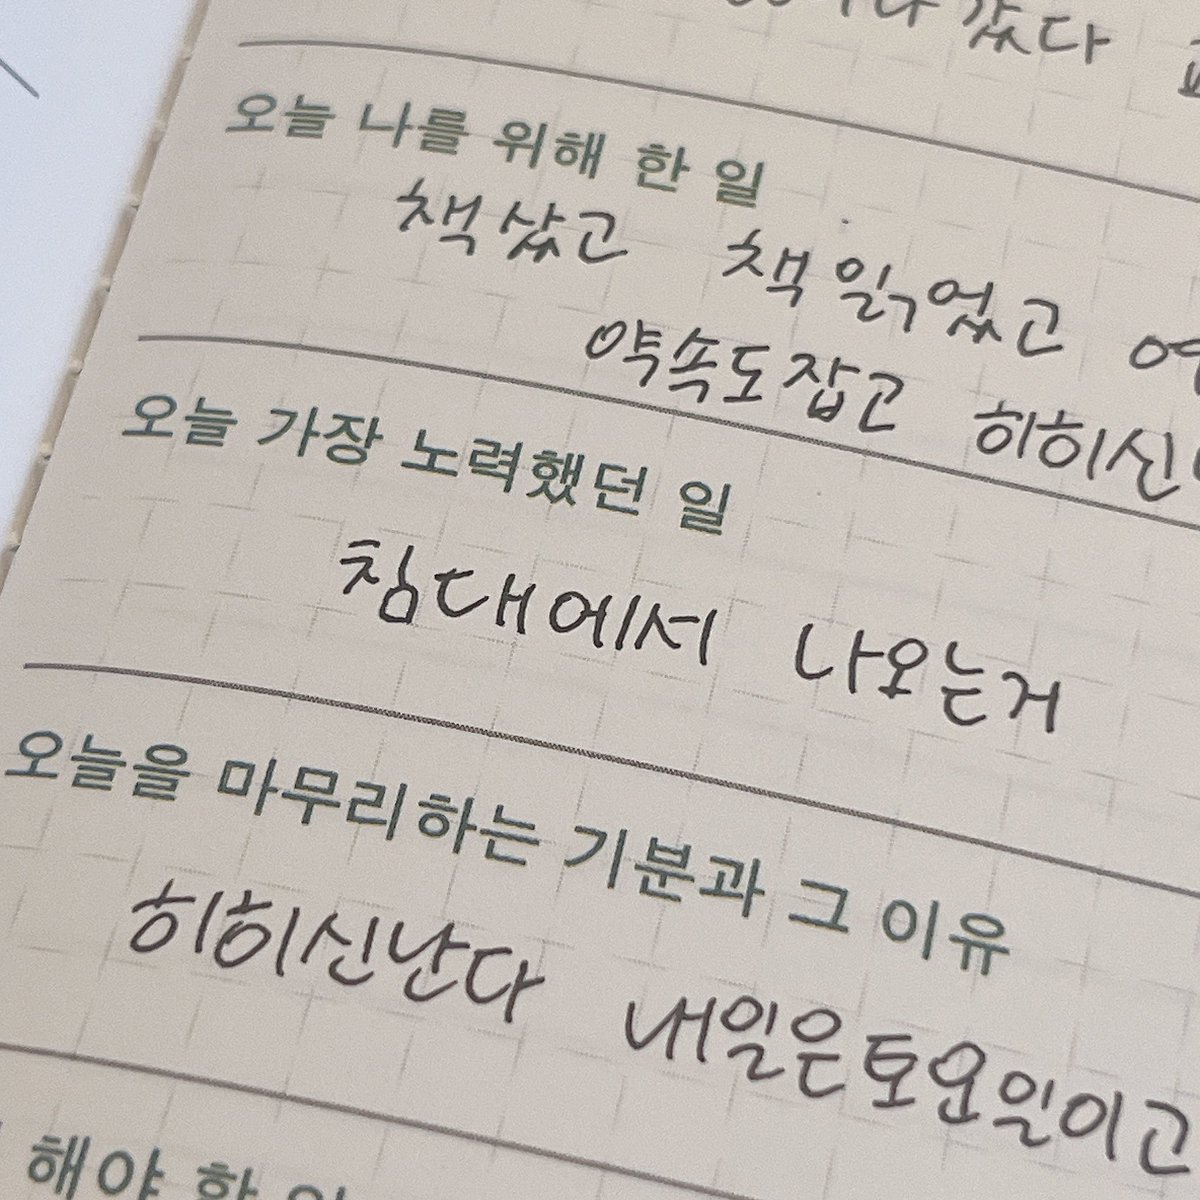 갔다
오늘 나를 위해 한 일
책샀고 책읽었고
약속도잡고 히히신
오늘 가장 노력했던 일
침대에서 나오는거
오늘을 마무리하는 기분과 그 이유
히히신난다 내일은토요일이고
해야 할 일